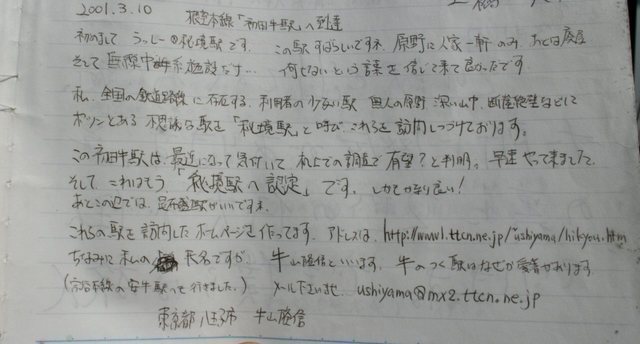 2001.3.10
根室本線「初田牛駅」へ到達
初めまして うっしー@秘境駅です。この駅すばらしいですネ。原野に人家一軒のみ、あとは廃屋
そして 無線中継施設だけ… 何もないという言葉を信じて来て良かったです
私、全国の鉄道路線に存在する、利用者の少ない駅 無人の原野 深い山中、断崖絶壁などに
ポツンとある 不思議な駅を「秘境駅」と呼び、これらを訪問しつづけております。
この初田牛駅は、最近になって気付いて 机上での調査で有望?と判明。早速やって来ました。
そして、これはもう「秘境駅へ認定」です。しかもかなり良い!
あとこの辺では、 駅がいいですネ。
これらの駅を訪問したホームページを作ってます。アドレスは、http://www1.ttcn.ne.jp/~ushiyama/hikyou.htm
ちなみに私の 氏名ですが、牛山隆信といいます。牛のつく駅はなぜか愛着があります
(宗谷本線の安牛駅へも行きました。) メール下さいませ ushiyama@mx2.ttcn.ne.jp
東京都八王子市 牛山隆信